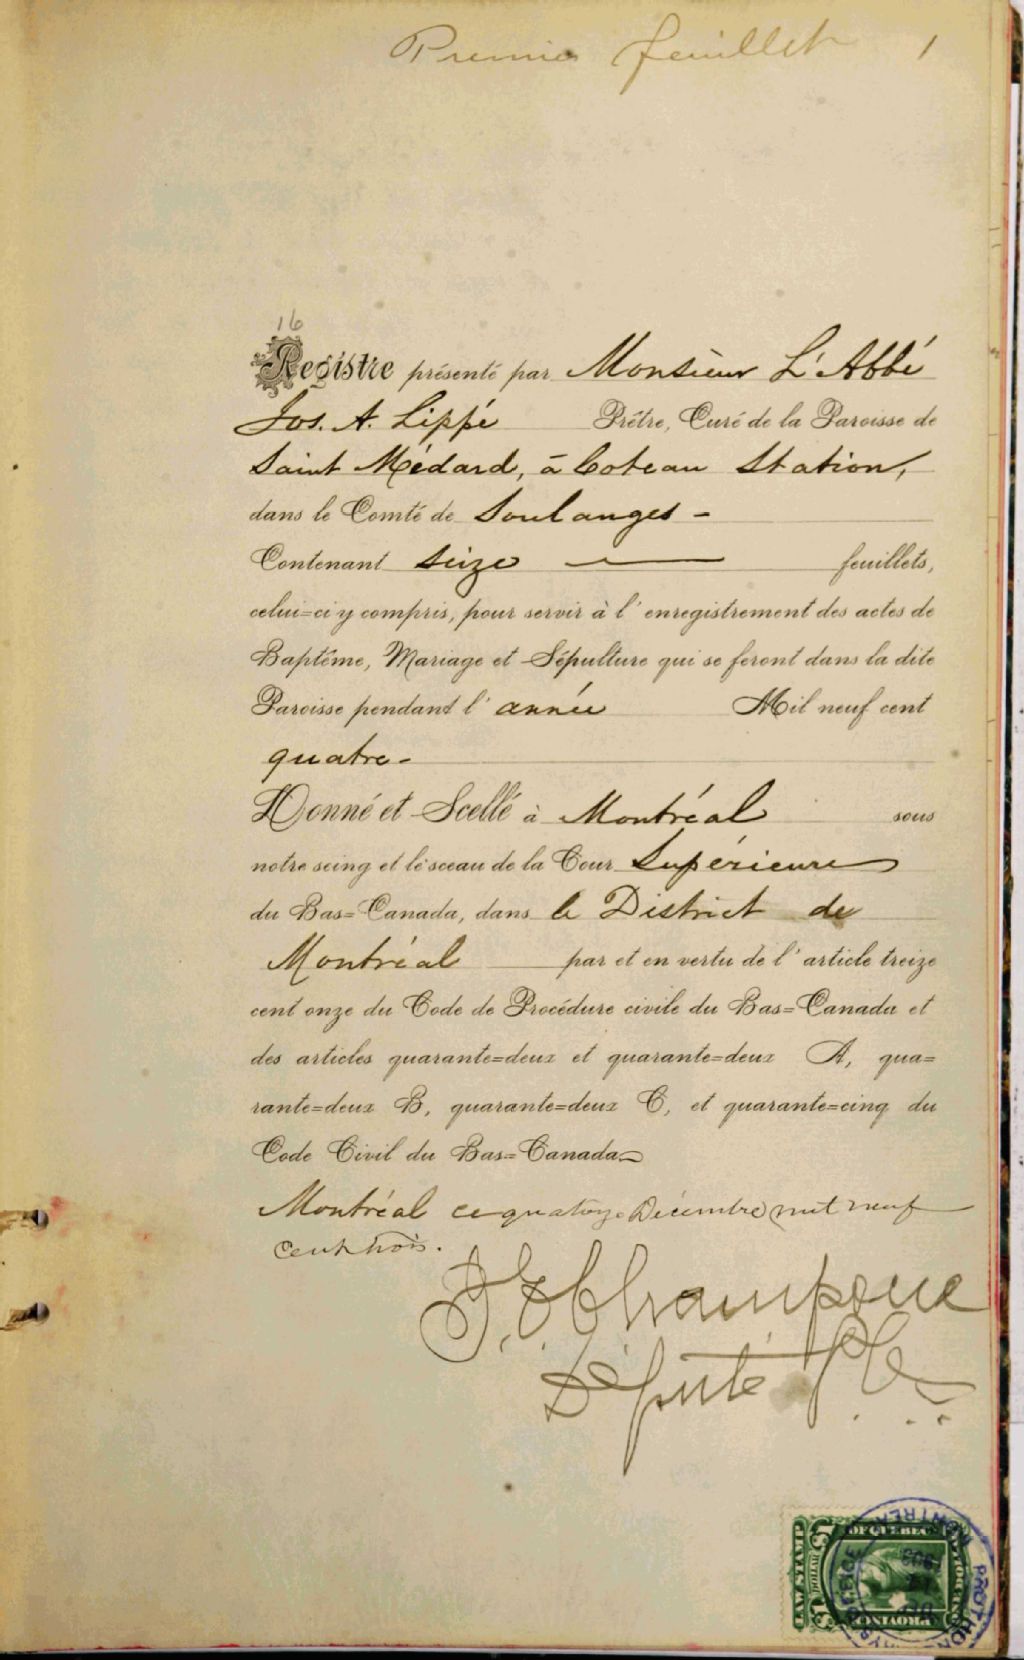 Premier feuillet 1
16
Registre présenté par Monsieur L'Abbé
Jos. A. Lippé Prêtre, Curé de la Paroisse de
Saint Médard, à Coteau Station,
dans le Comté de Soulanges -
Contenant seize feuillets,
celui=ci y compris, pour servir à l'enregistrement des actes de
Baptême, Mariage et Sépulture qui se feront dans la dite
Paroisse pendant l'année Mil neuf cent
quatre -
Donné et Scellé à Montréal sous
notre seing et le sceau de la Cour Supérieure
du Bas=Canada, dans le District de
Montréal par et en vertu de l'article treize
cent onze du Code de Procédure civile du Bas=Canada et
des articles quarante=deux et quarante=deux A, qua=
rante=deux B, quarante=deux C, et quarante=cinq du
Code Civil du Bas=Canada
Montréal ce quatorze Décembre mil neuf
cent trois.
Champoux
Député
LAW STAMP
DOLLAR
PROVINCE
OF QUEBEC
MONTREAL
14
1903